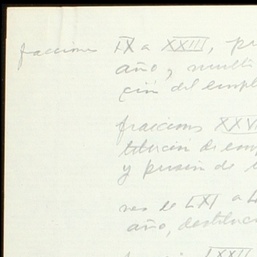 facciones IX a XXIII, pr
año, y multi
ción del empl
fracciones XXVI
titución de emp
y prisión de
nes de LXI a L
año, destituci
LXXII